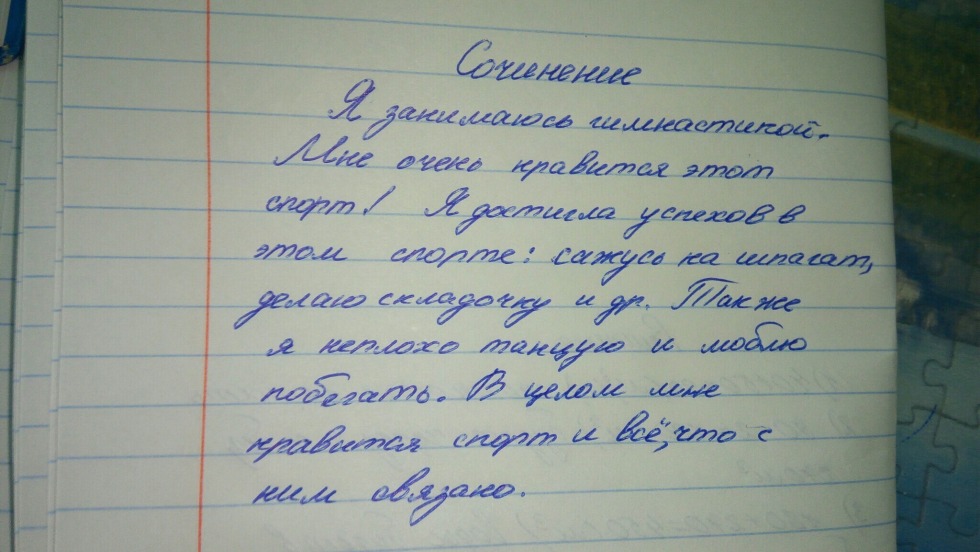 Сочинение
Я занимаюсь гимнастикой.
Мне очень нравится этот
спорт! Я достигла успехов в
этом спорте: сажусь на шпагат,
делаю складочку и др. Также
я неплохо танцую и люблю
побегать. В целом мне
нравится спорт и всё, что с
ним связано.